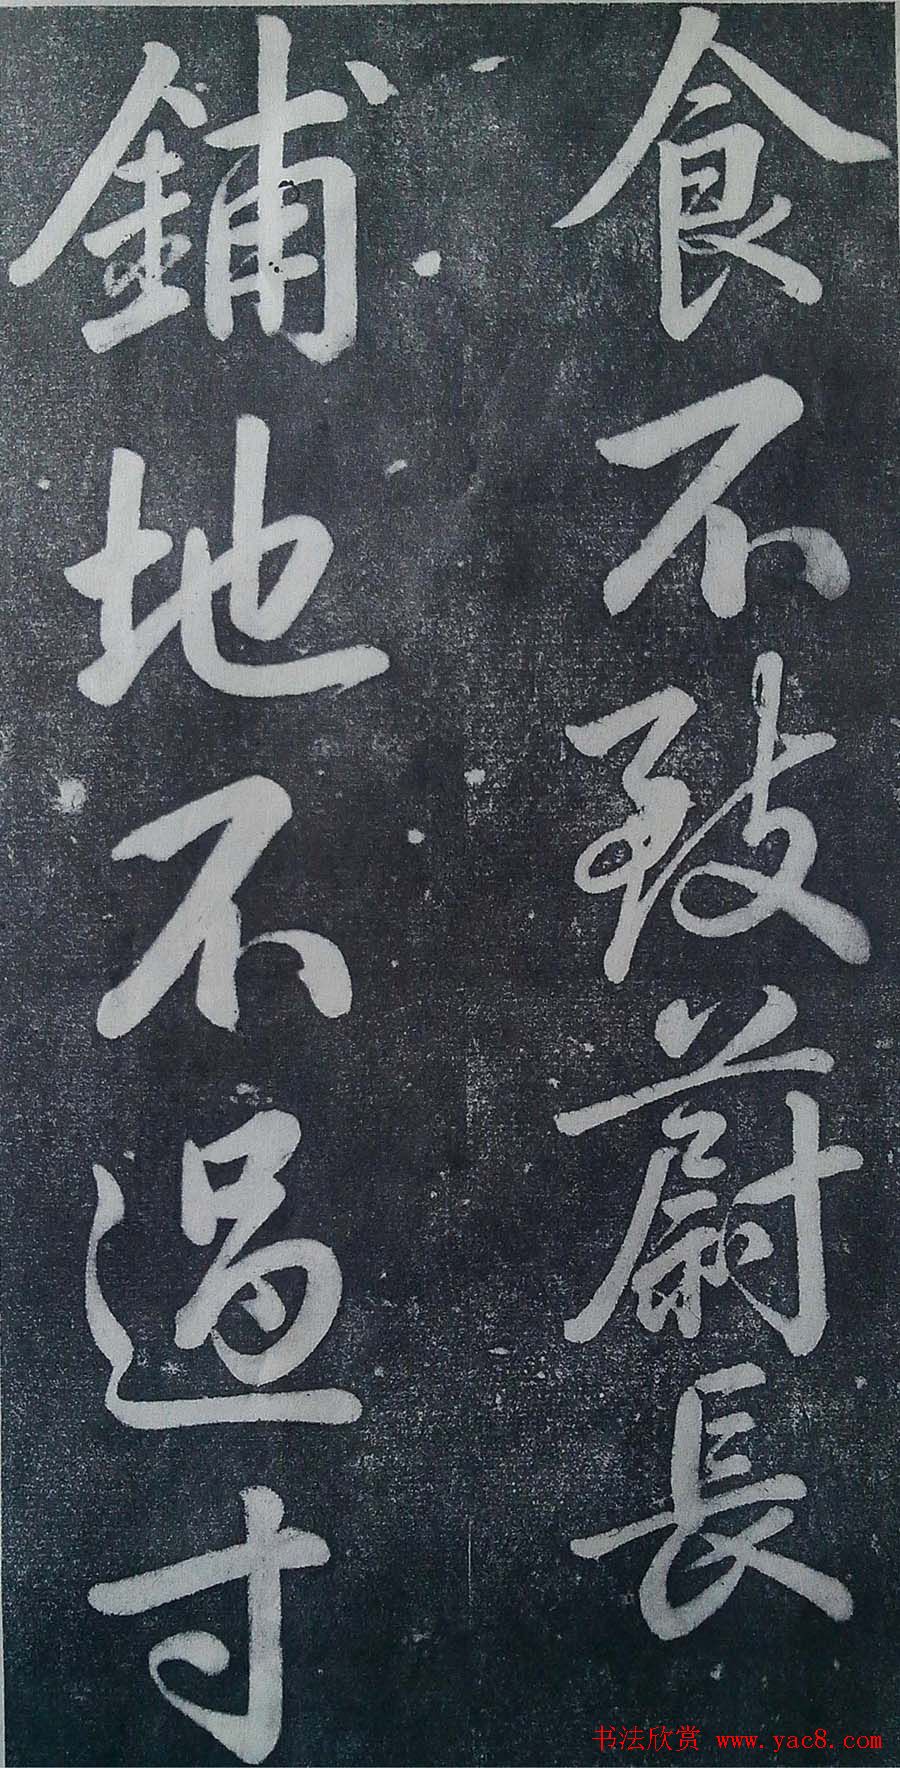 食不致蔚長
鋪地不過寸
书法欣赏 www.yac8.com